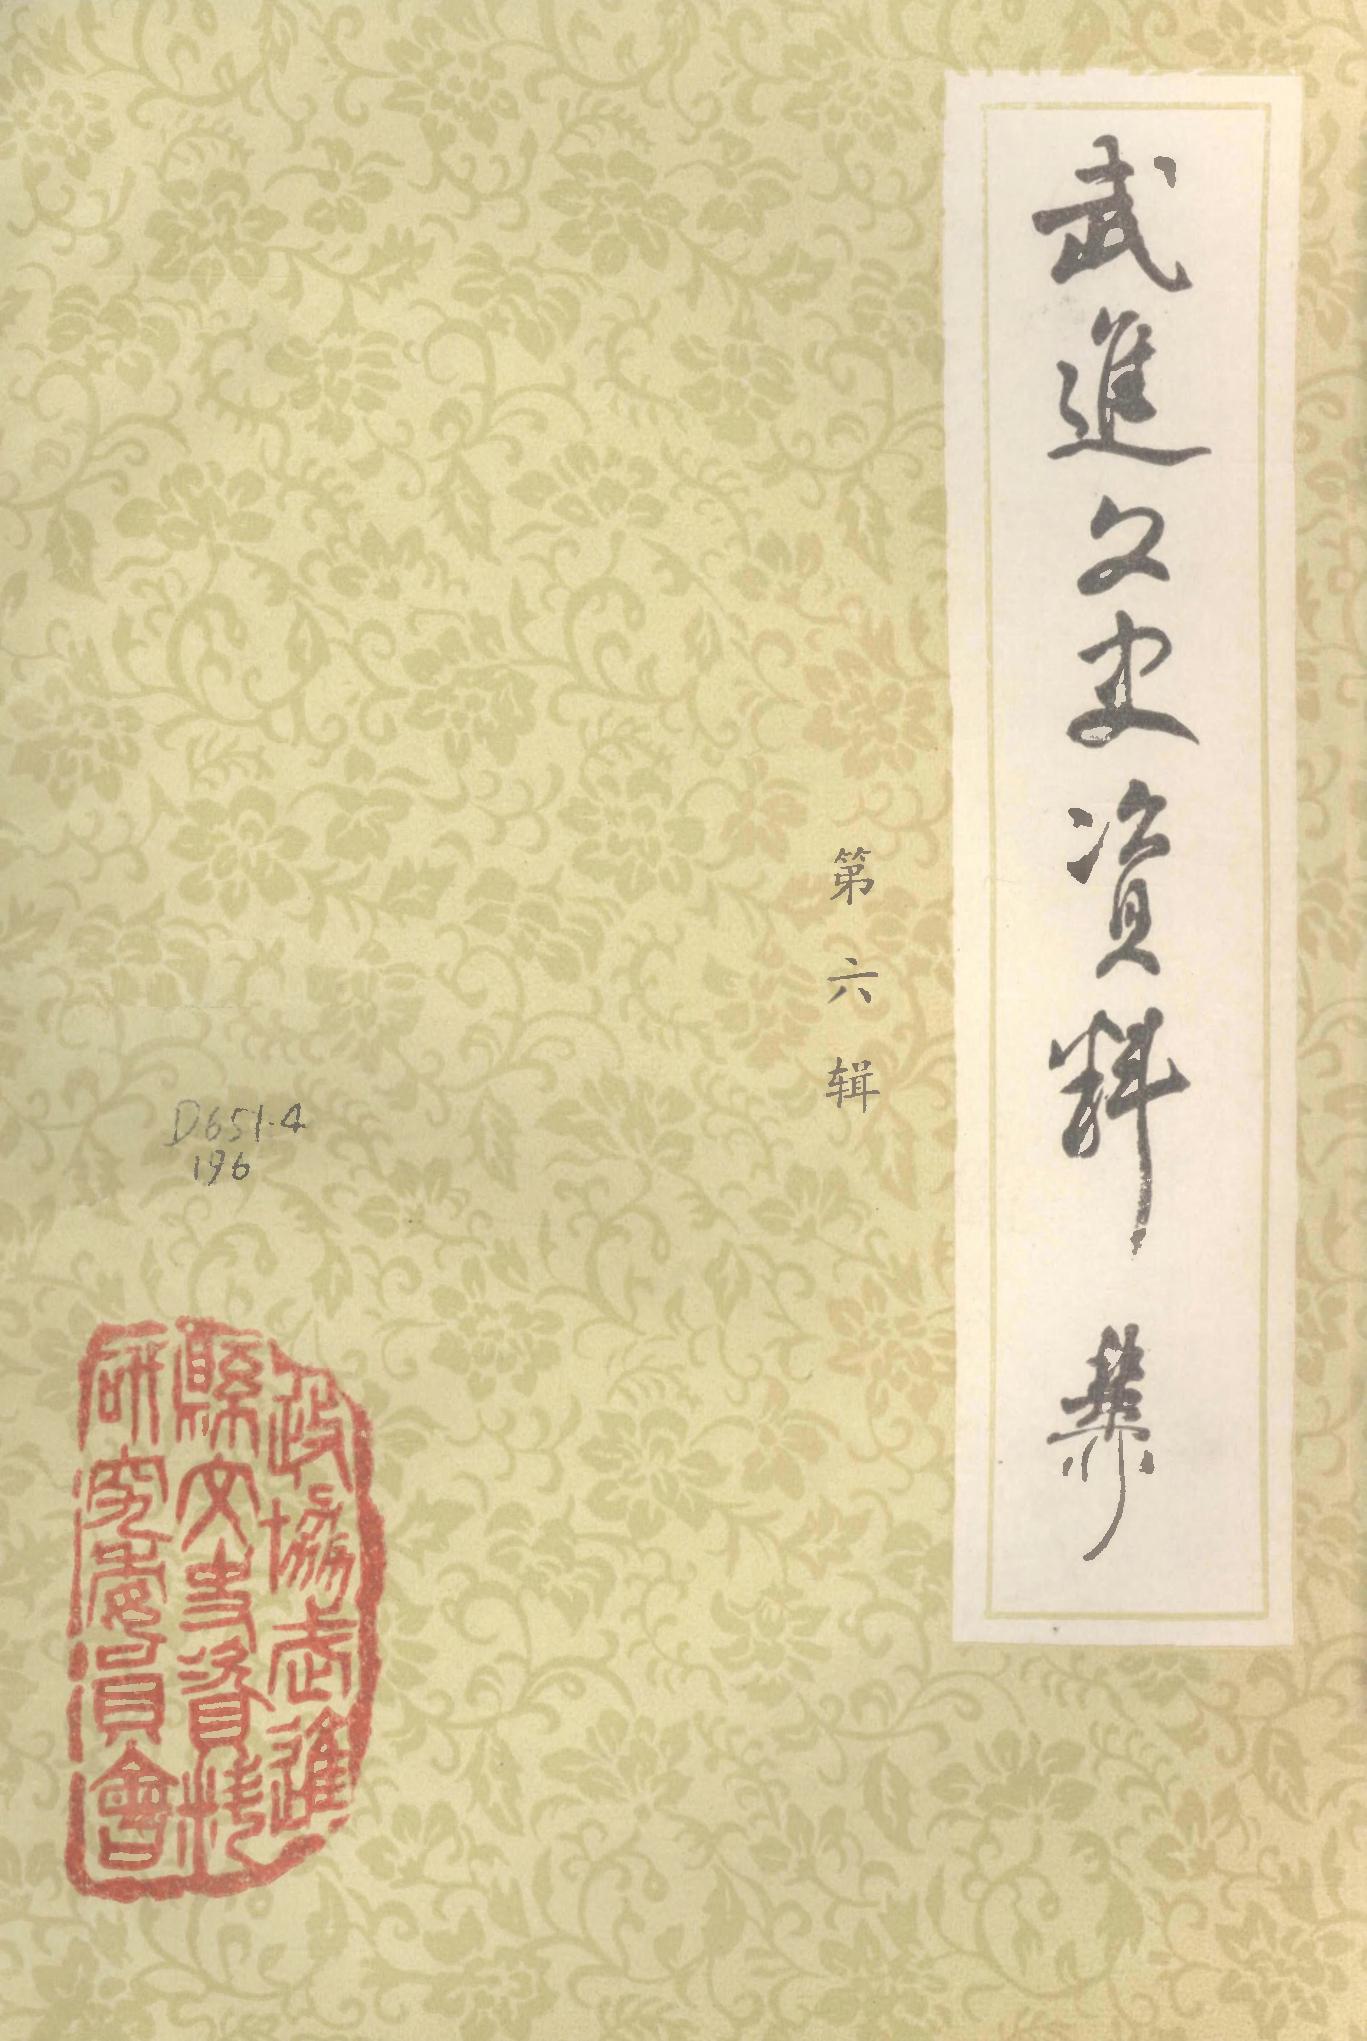 武進文史资料
第六辑
D651.4
196
政協武進
縣文史資料
研究委員會